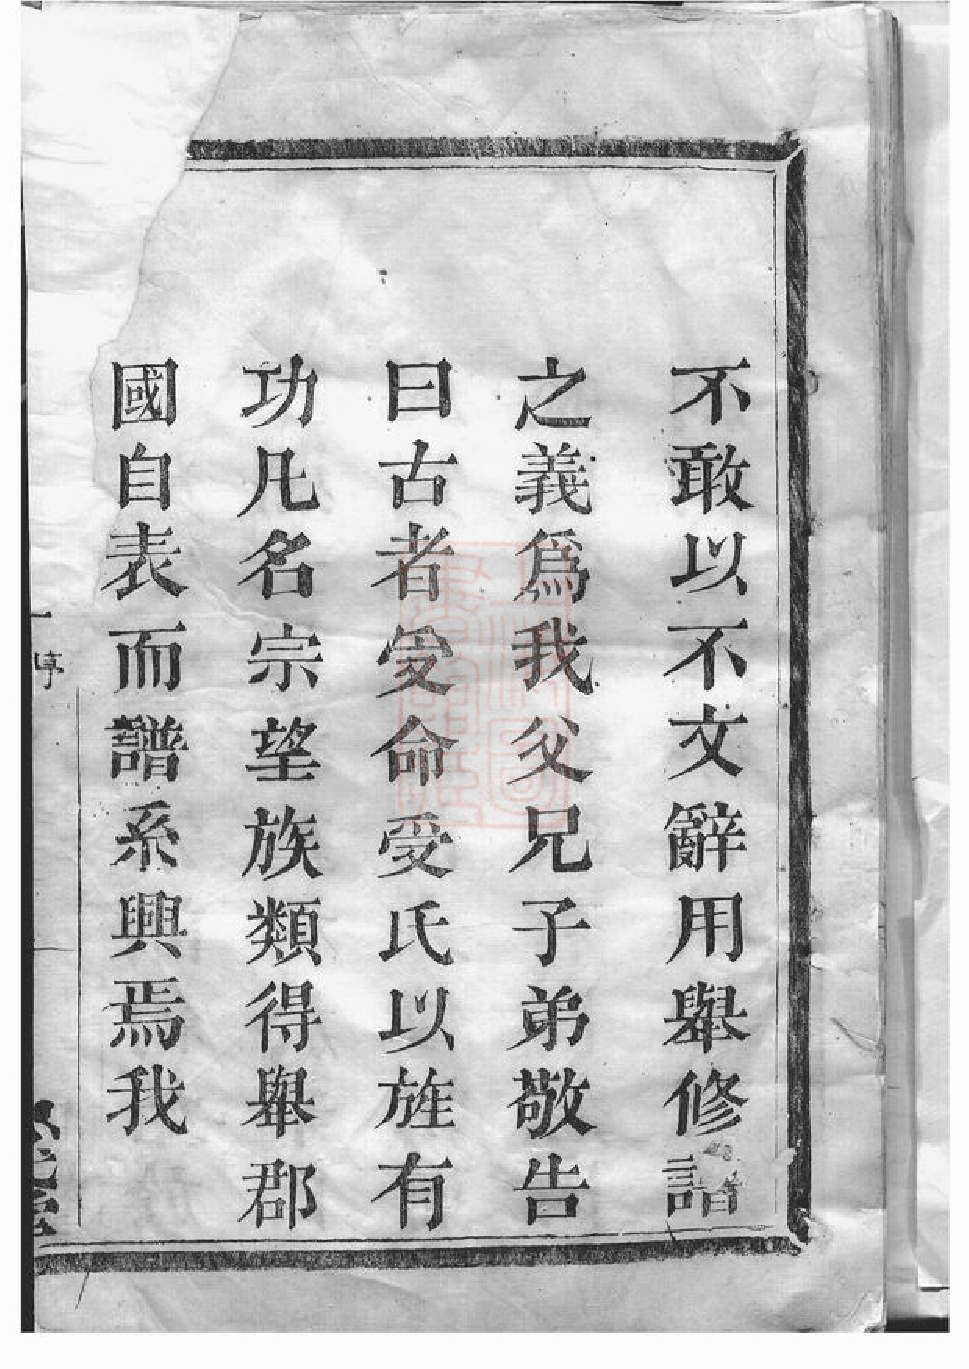 不敢以不文辭用舉修譜
之義爲我父兄子弟敬告
曰古者受命受氏以旌有
功凡名宗望族類得舉郡
國自表而譜系興焉我
序